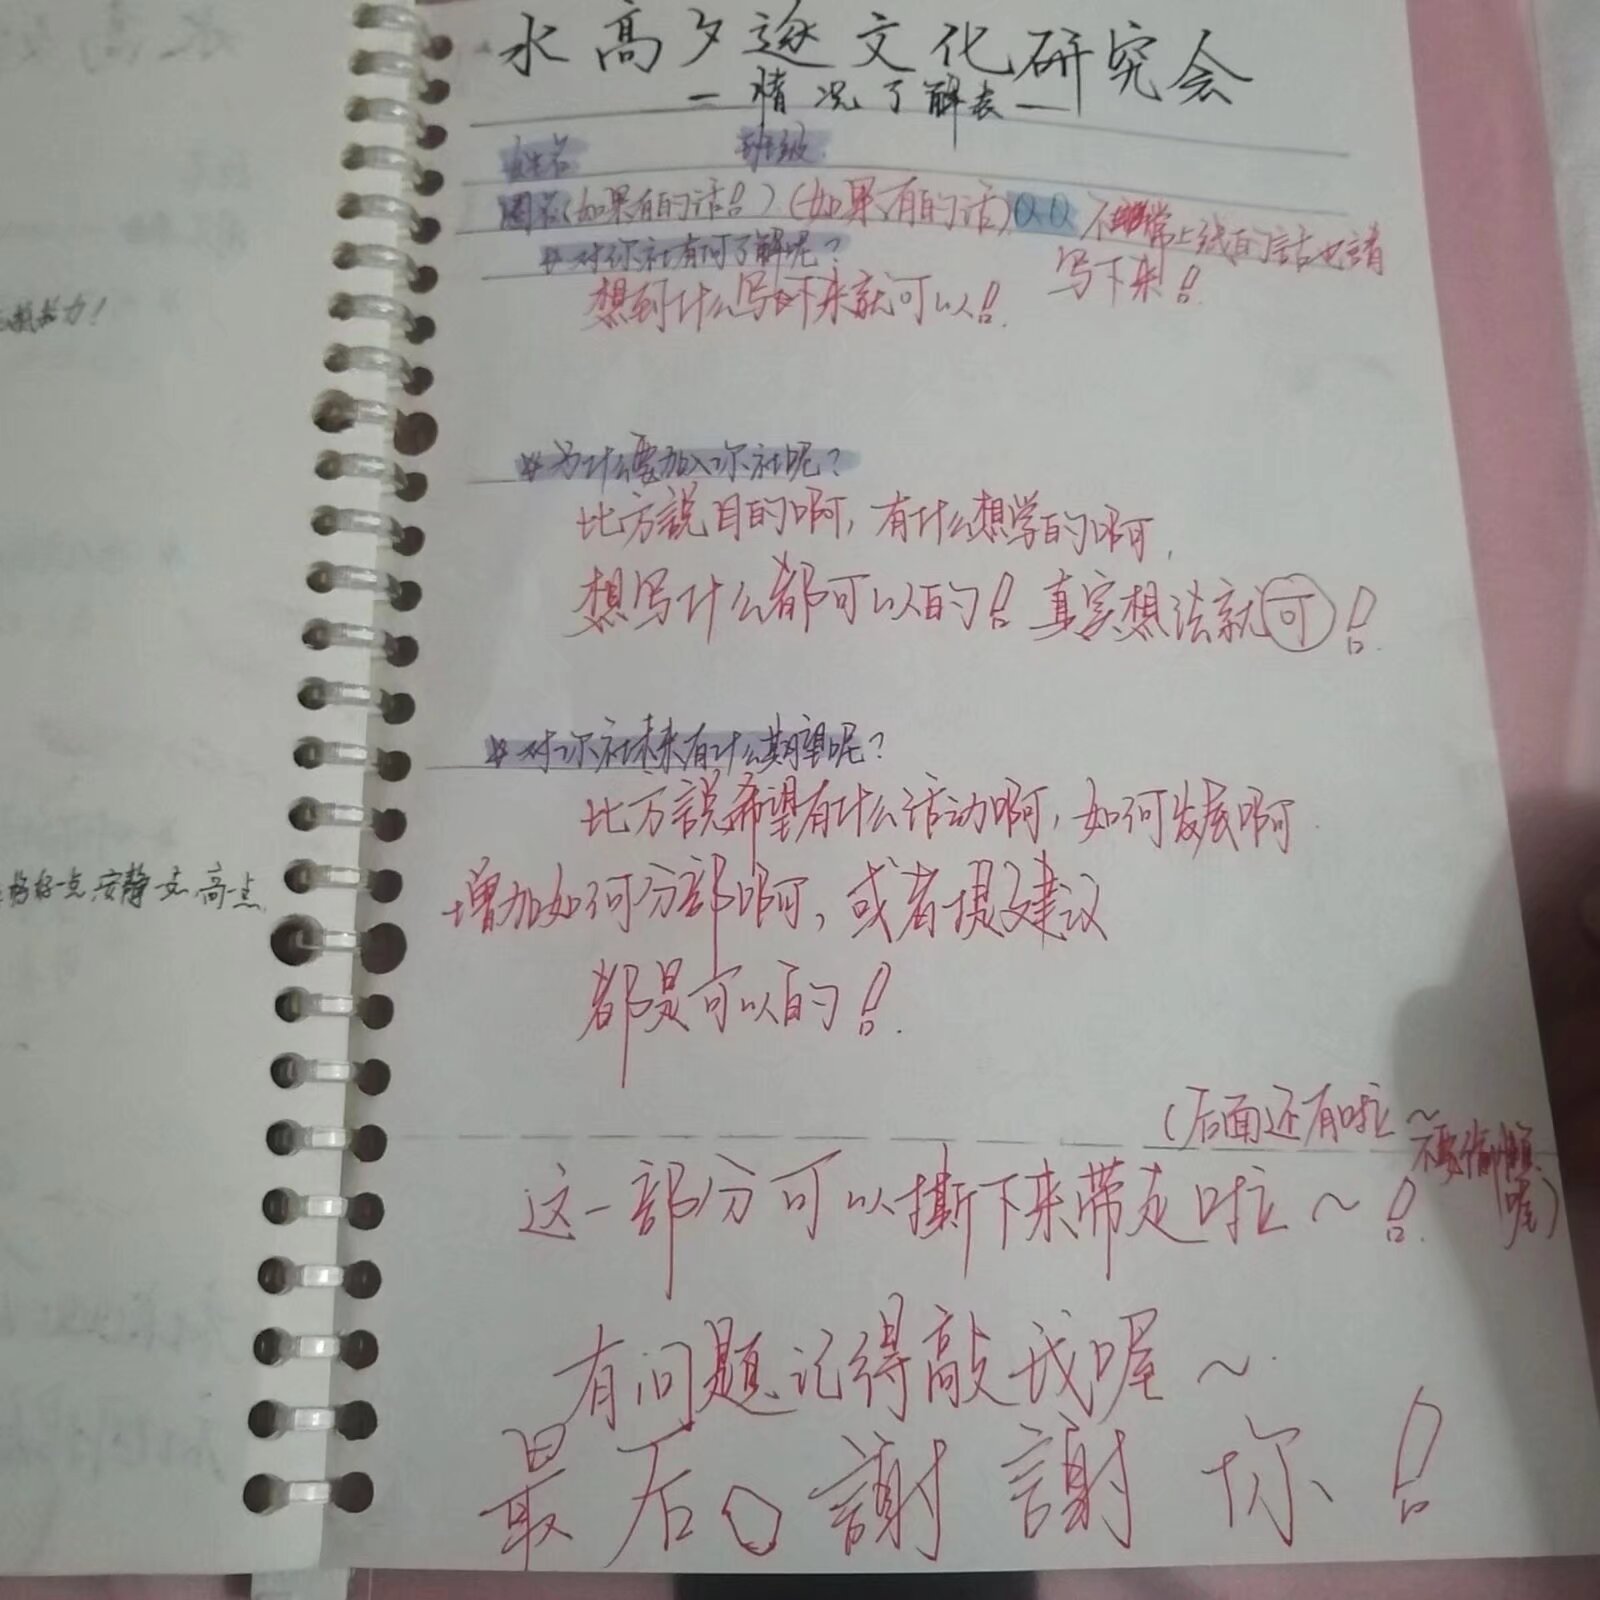 水高夕逐文化研究会
一情况了解表一
姓名 班级
圈名(如果有的话!)(如果有的话)QQ 不常上线的话也請
写下来!
#对你社有何了解呢?
想到什么写下来就可以!
#为什么要加入你社呢?
比方說目的啊,有什么想学的啊,
想写什么都可以的!真实想法就可!
#对你社未来有什么期望呢?
比方說希望有什么活动啊,如何发展啊
增加如何分部啊,或者提建议
都是可以的!
(后面还有啦~
不要偷懒
喔)
这一部分可以撕下来带走啦~!
有问题记得敲我喔~
最后。謝謝你!
力!
好一点,安静一点,高一点